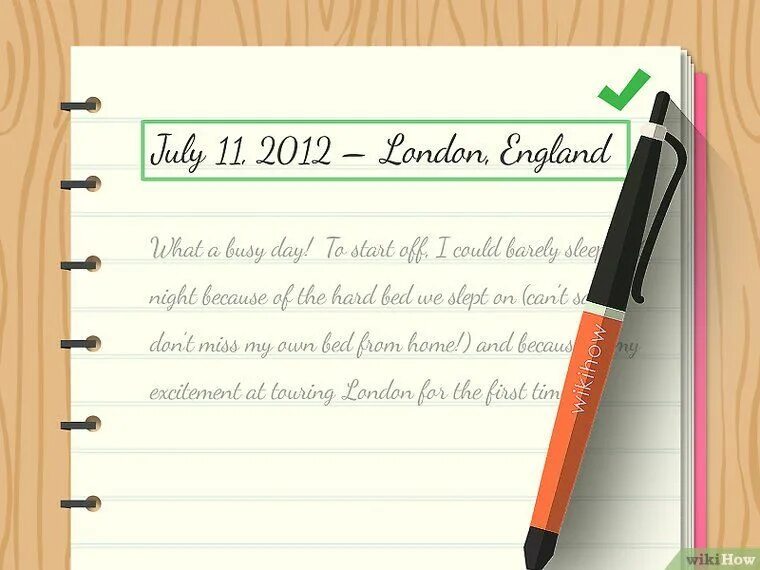 July 11, 2012 – London, England
What a busy day! To start off, I could barely sleep
night because of the hard bed we slept on (can't
don't miss my own bed from home!) and because my
excitement at touring London for the first
wikihow
wikiHow